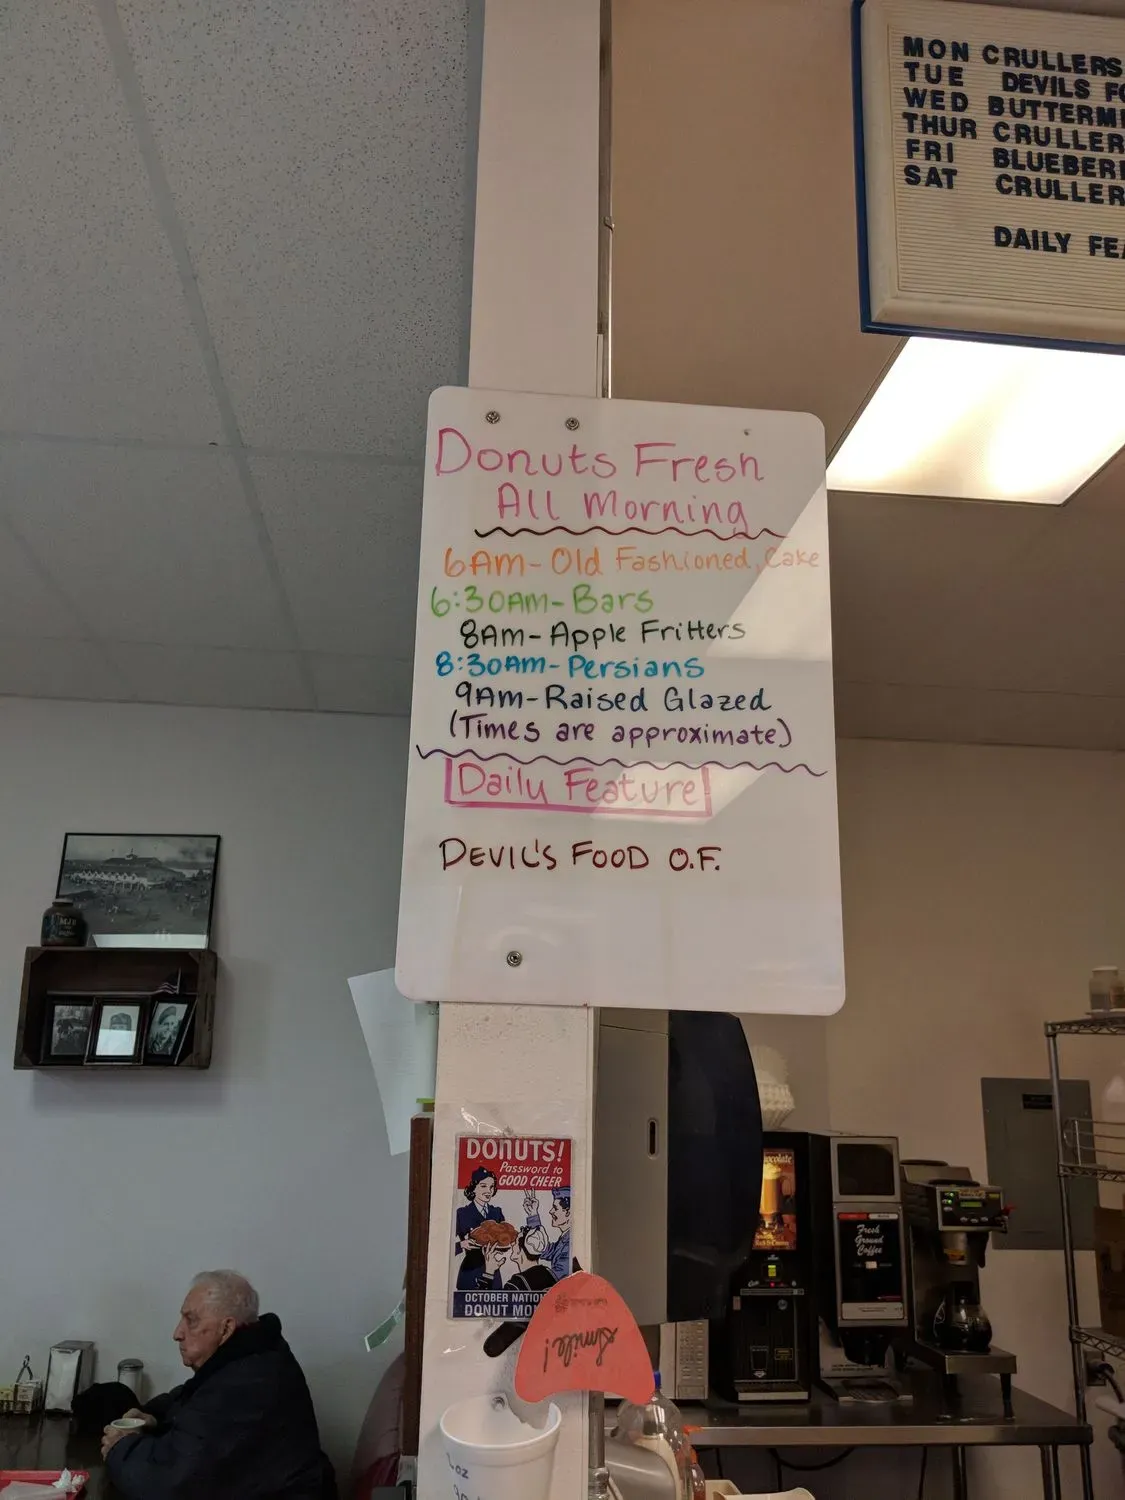 MON CRULLERS
TUE DEVILS
WED
THUR
FRI
SAT
DAILY
Donuts Fresh
All Morning
6AM- Old Fashioned, Cake
6:30AM- Bars
8AM- Apple Fritters
8:30AM- Persians
9AM- Raised Glazed
(Times are approximate)
Daily Feature
DEVIL'S FOOD O.F.
MJB
DONUTS!
Password to
GOOD CHEER
OCTOBER
DONUT
Smile!
Fresh
Ground
Coffee
oz